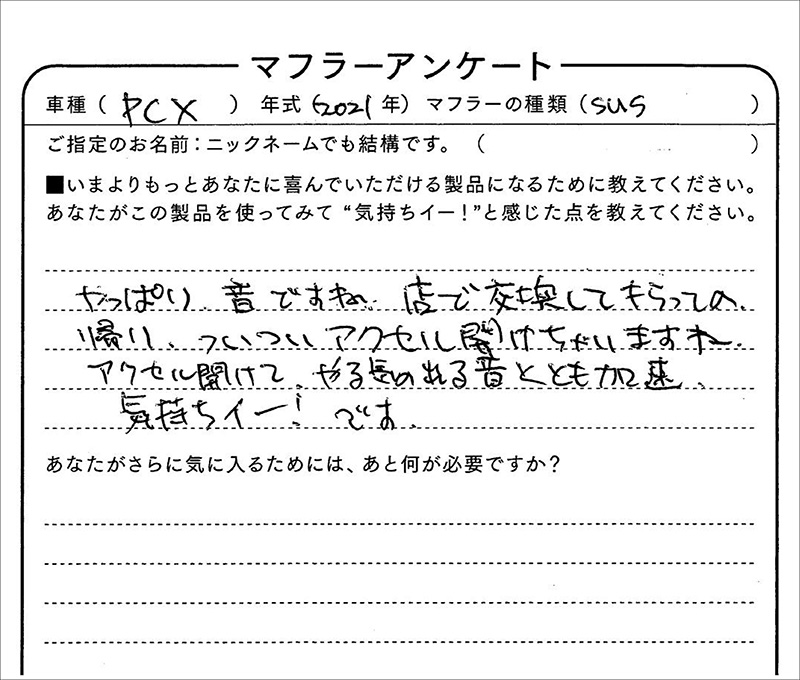 マフラーアンケート
車種（ PCX ） 年式（2021年） マフラーの種類（SUS ）
ご指定のお名前：ニックネームでも結構です。（ ）
■いまよりもっとあなたに喜んでいただける製品になるために教えてください。
あなたがこの製品を使ってみて “気持ちイー！”と感じた点を教えてください。
やっぱり、音ですね。店で交換してもらっての、
帰り、ついついアクセル開けちゃいますねー。
アクセル開けて、やる れる音とともに加速、
気持ちイー！です。
あなたがさらに気に入るためには、あと何が必要ですか？